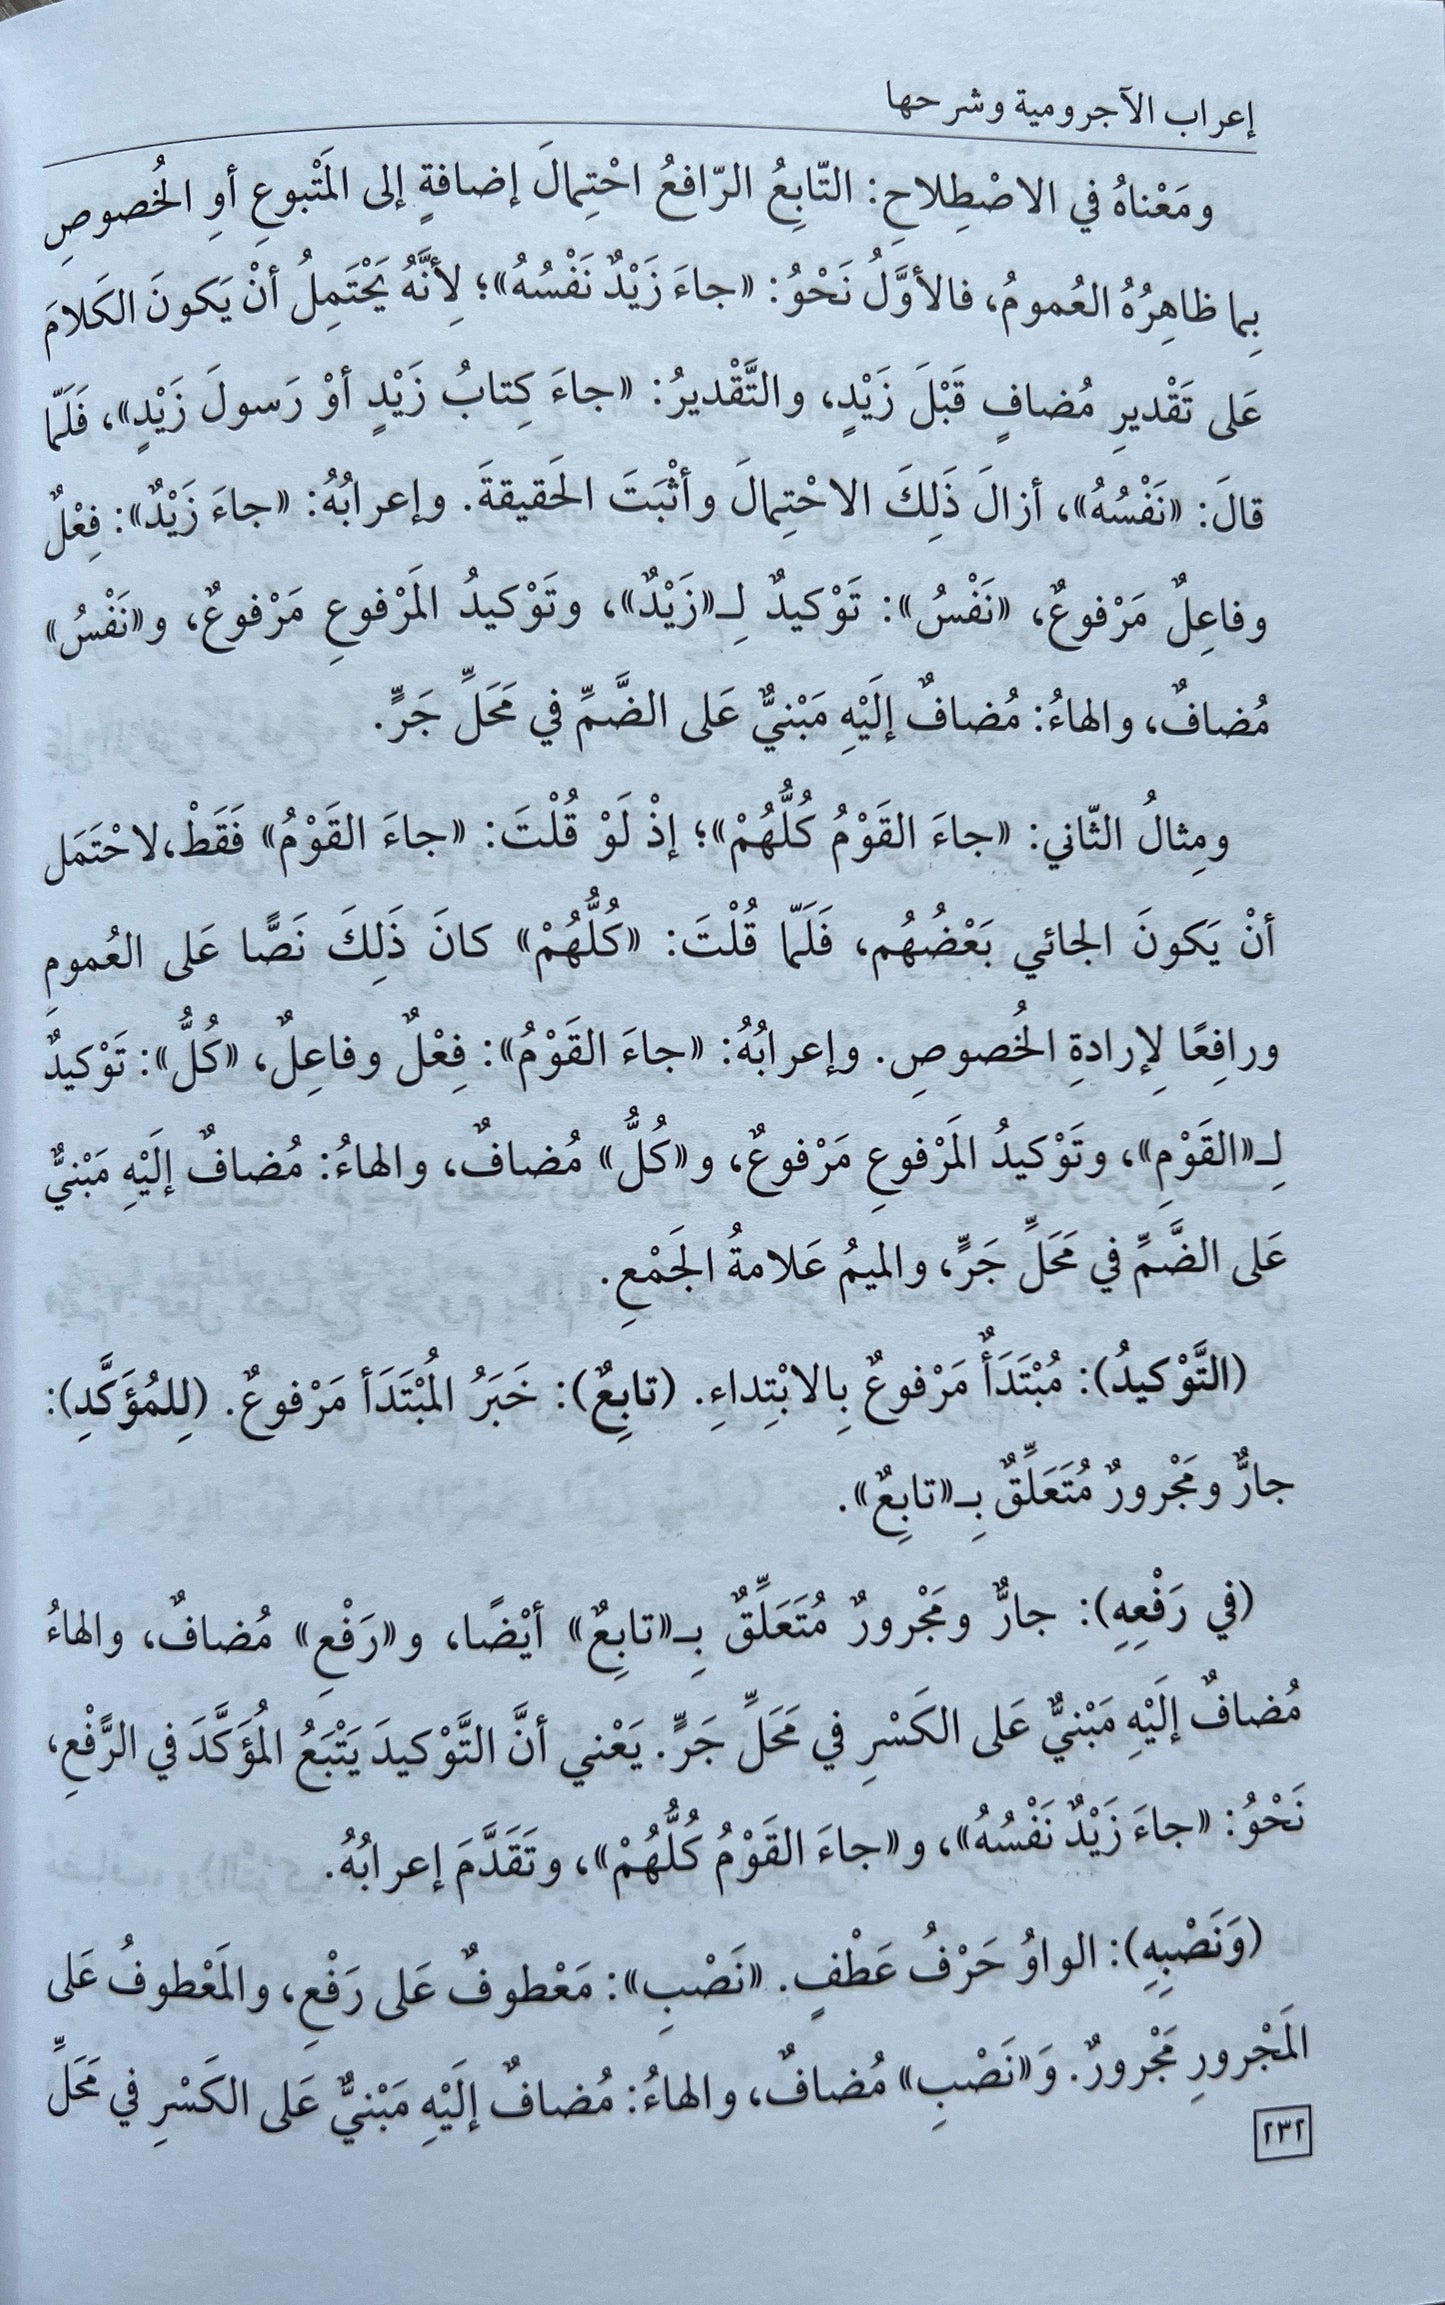 إعراب الآجرومية وشرحها
ومَعْناهُ في الاصْطِلاحِ: التّابِعُ الرّافعُ احْتِمالَ إضافةٍ إلى المَتْبوعِ أوِ الخُصوصِ
بِما ظاهِرُهُ العُمومُ، فالأوَّلُ نَحْوُ: «جاءَ زَيْدٌ نَفْسُهُ»؛ لِأنَّهُ يَحْتَمِلُ أنْ يَكونَ الكَلامَ
عَلى تَقْديرِ مُضافٍ قَبْلَ زَيْدٍ، والتَّقْديرُ: «جاءَ كِتابُ زَيْدٍ أوْ رَسولَ زَيْدٍ»، فَلَمّا
قالَ: «نَفْسُهُ»، أزالَ ذَلِكَ الاحْتِمالَ وأثْبَتَ الحَقيقةَ. وإعرابُهُ: «جاءَ زَيْدٌ»: فِعْلٌ
وفاعِلٌ مَرْفوعٌ، «نَفْسُ»: تَوْكيدٌ لِـ«زَيْدٌ»، وتَوْكيدُ المَرْفوعِ مَرْفوعٌ، و«نَفْسُ»
مُضافٌ، والهاءُ: مُضافٌ إلَيْهِ مَبْنيٌّ عَلى الضَّمِّ في مَحَلِّ جَرٍّ.
ومِثالُ الثّاني: «جاءَ القَوْمُ كُلُّهُمْ»؛ إذْ لَوْ قُلْتَ: «جاءَ القَوْمُ» فَقَطْ،لاحْتَمَل
أنْ يَكونَ الجائي بَعْضُهُم، فَلَمّا قُلْتَ: «كُلُّهُمْ» كانَ ذَلِكَ نَصًّا عَلى العُمومِ
ورافِعًا لِإرادةِ الخُصوصِ. وإعرابُهُ: «جاءَ القَوْمُ»: فِعْلٌ وفاعِلٌ، «كُلُّ»: تَوْكيدٌ
لِـ«القَوْمِ»، وتَوْكيدُ المَرْفوعِ مَرْفوعٌ، و«كُلُّ» مُضافٌ، والهاءُ: مُضافٌ إلَيْهِ مَبْنيٌّ
عَلى الضَّمِّ في مَحَلِّ جَرٍّ، والميمُ عَلامةُ الجَمْعِ.
(التَّوْكيدُ): مُبْتَدَأٌ مَرْفوعٌ بِالابْتِداءِ. (تابِعٌ): خَبَرُ المُبْتَدَأ مَرْفوعٌ. (لِلمُؤَكَّدِ):
جارٌّ ومَجْرورٌ مُتَعَلِّقٌ بِـ«تابِعٌ».
(في رَفْعِهِ): جارٌّ ومَجْرورٌ مُتَعَلِّقٌ بِـ«تابِعٌ» أيْضًا، و«رَفْعِ» مُضافٌ، والهاءُ
مُضافٌ إلَيْهِ مَبْنيٌّ عَلى الكَسْرِ في مَحَلِّ جَرٍّ. يَعْني أنَّ التَّوْكيدَ يَتْبَعُ المُؤَكَّدَ في الرَّفْعِ،
نَحْوُ: «جاءَ زَيْدٌ نَفْسُهُ»، و«جاءَ القَوْمُ كُلُّهُمْ»، وتَقَدَّمَ إعرابُهُ.
(وَنَصْبِهِ): الواوُ حَرْفُ عَطْفٍ. «نَصْبِ»: مَعْطوفٌ عَلى رَفْعِ، والمَعْطوفُ عَلى
المَجْرورِ مَجْرورٌ. وَ«نَصْبِ» مُضافٌ، والهاءُ: مُضافٌ إلَيْهِ مَبْنيٌّ عَلى الكَسْرِ في مَحَلِّ
٢٣٢